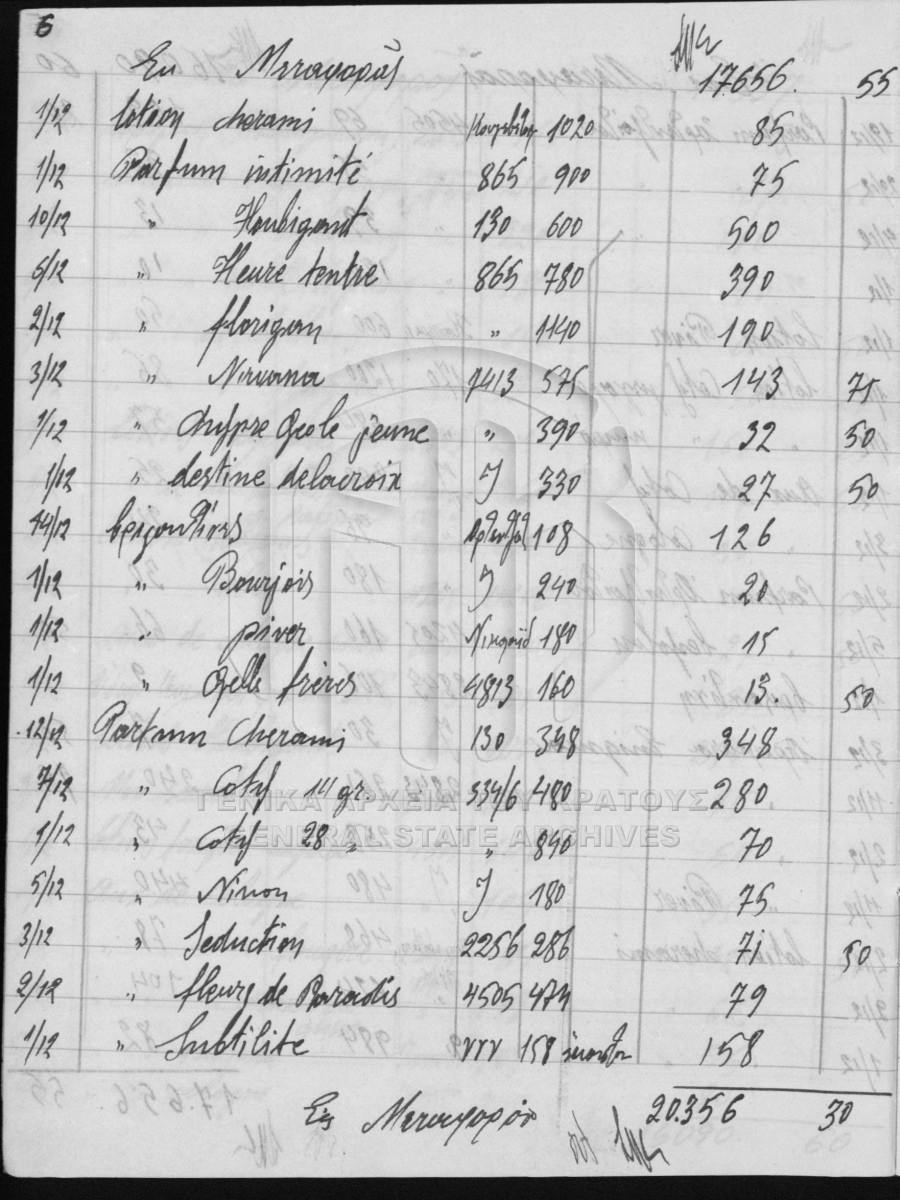 6
Δρχ
Εκ Μεταφοράς 17.656. 55
1/12 lotion cherami 1020 85
1/12 Parfum intimité 865 900 75
10/12 " Houbigant 130 600 500
6/12 " Heure tentre 865 780 390
2/12 " florigan " 1140 190
3/12 " Nirvana 7413 575 143 75
1/12 " chypre Geole jeune " 390 32 50
1/12 " destine delacroix J 330 27 50
14/12 108 126
1/12 " Bourjois J 240 20
1/12 " piver 180 15
1/12 " Gelle frères 4813 160 13. 50
12/12 Parfum Cherami 130 348 348
7/12 " Coty 14 gr. 334/6 480 280
ΓΕΝΙΚΑ ΑΡΧΕΙΑ ΤΟΥ ΚΡΑΤΟΥΣ
GENERAL STATE ARCHIVES
1/12 " Coty 28 " " 840 70
5/12 " Ninon J 180 75
3/12 " Seduction 2256 286 71 50
2/12 " fleurs de Paradis 4505 474 79
1/12 " Subtilite γγγ 158 158
Εις Μεταφοράν 20.356 30